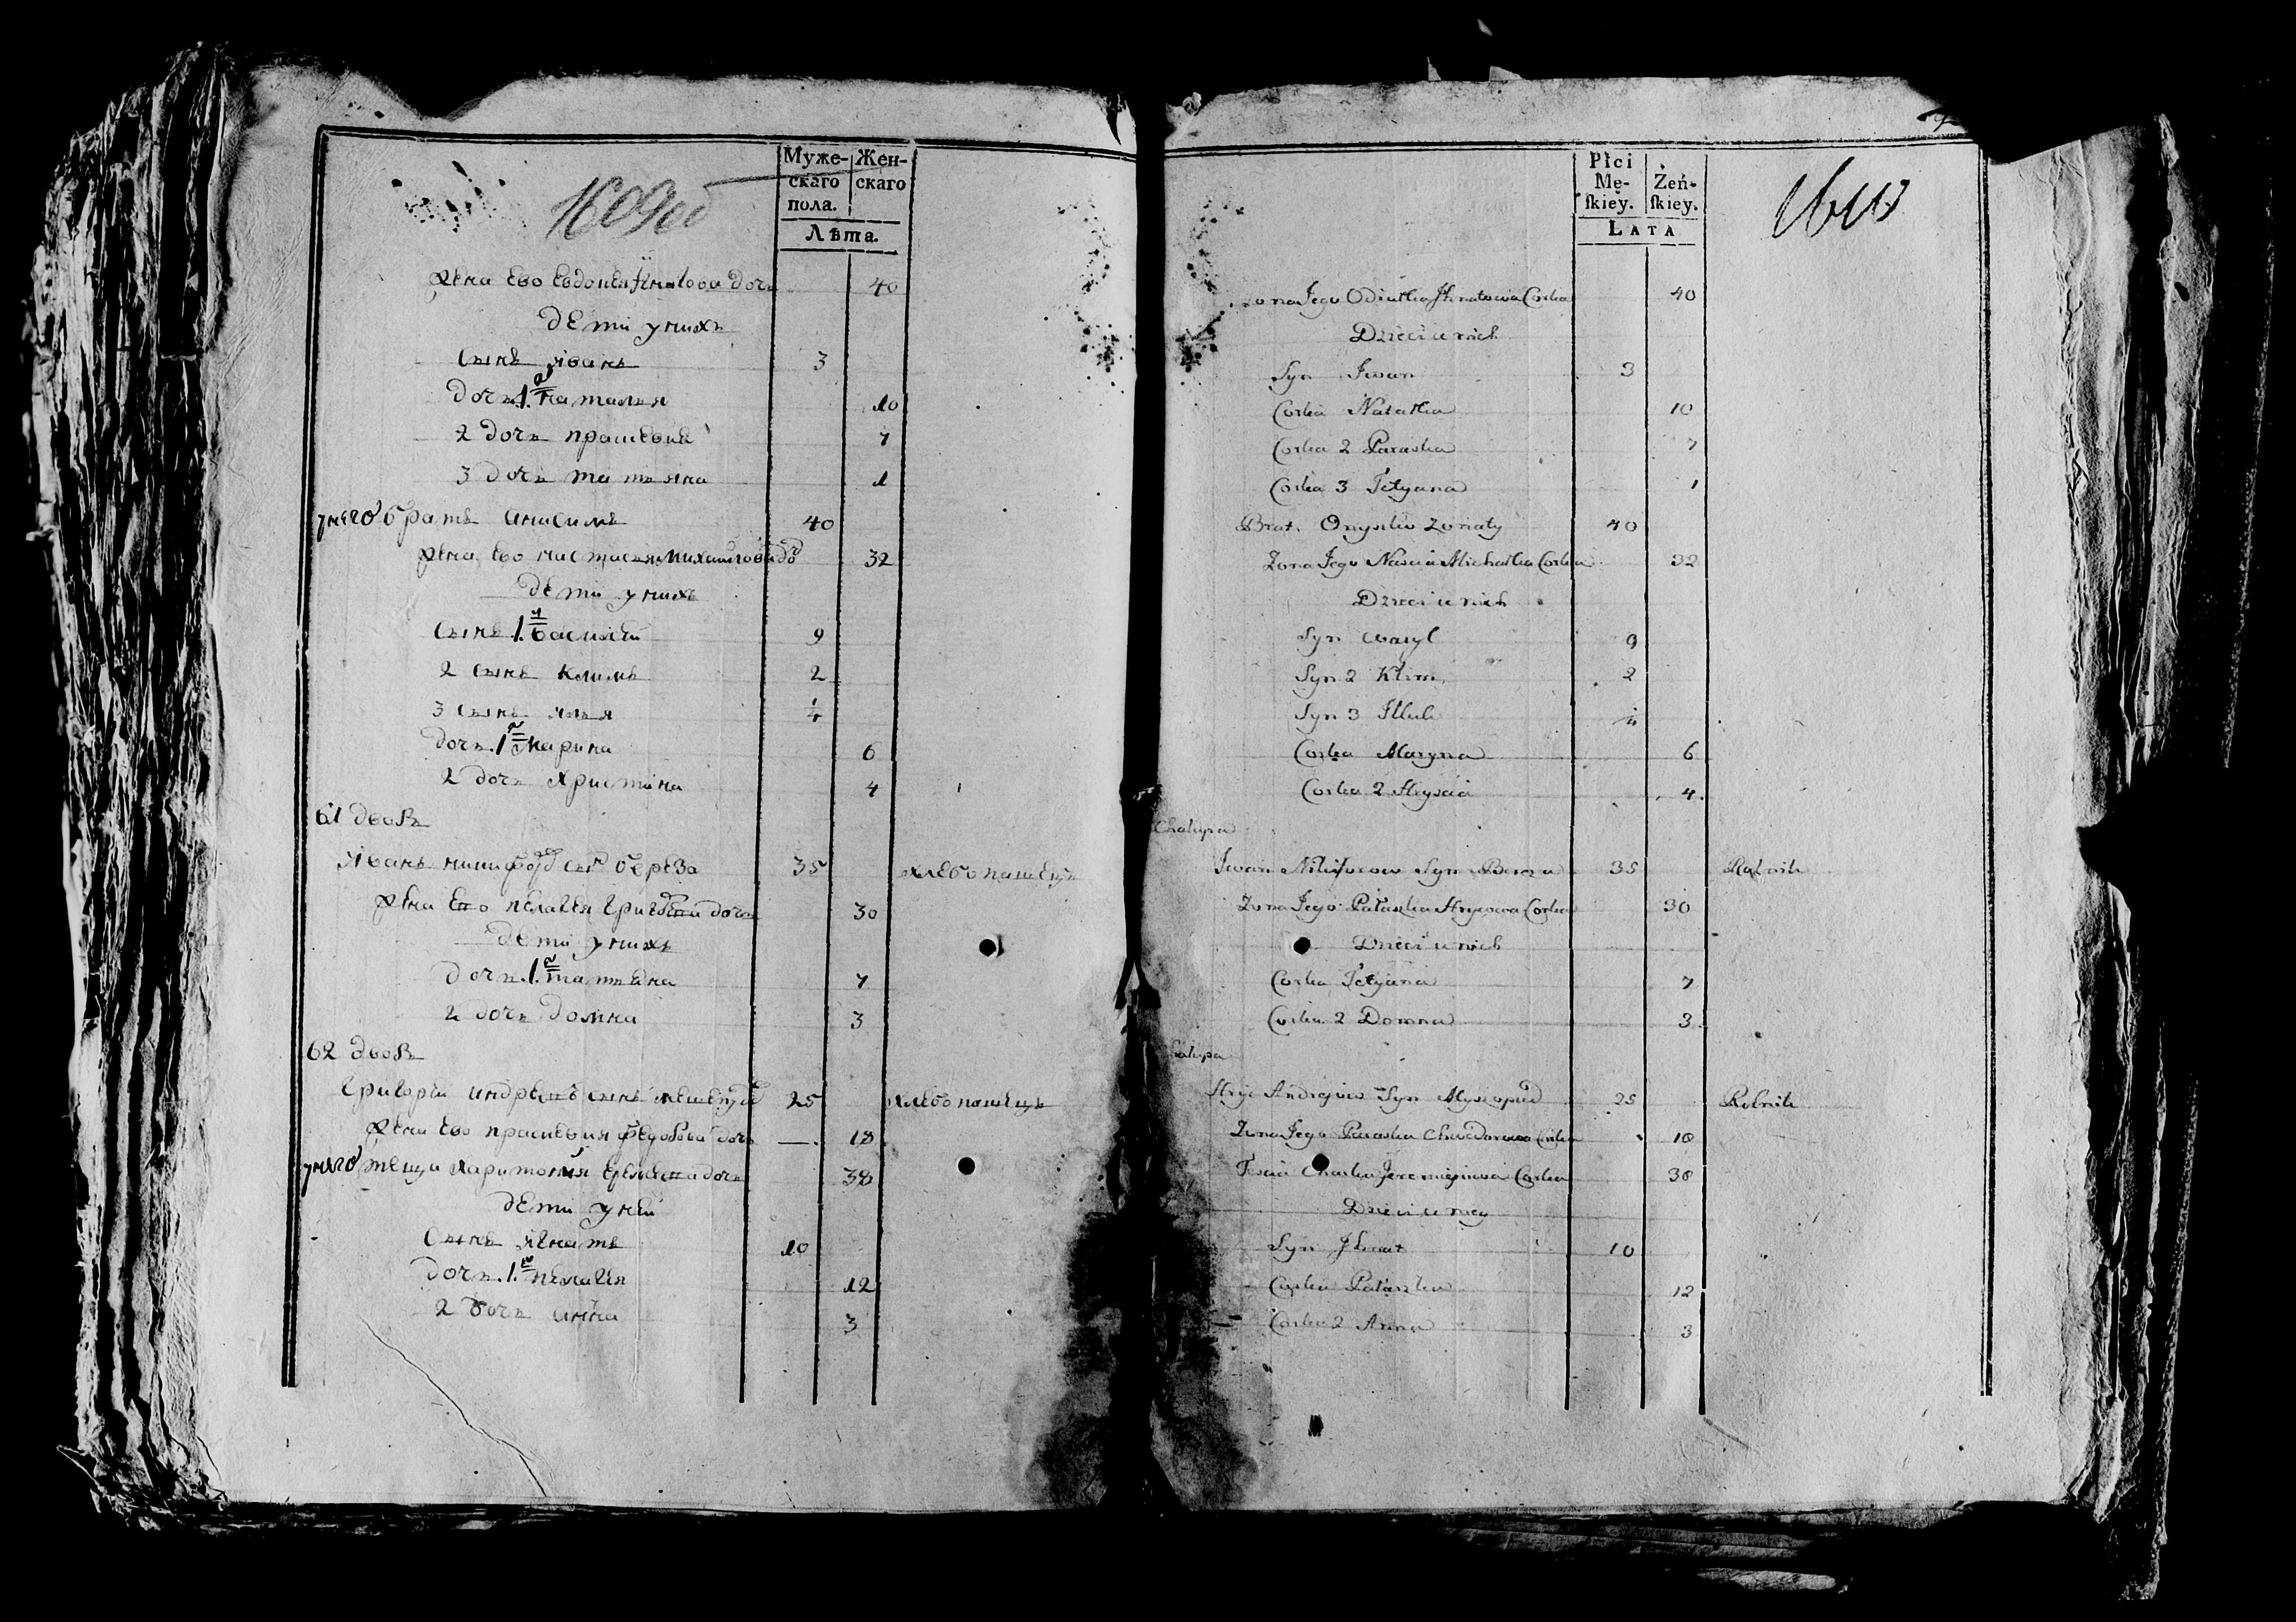 1609об
Муже-
скаго
пола.
Жен-
скаго
Лѣта.
жена ево Евдокея Игнатова дочь 40
дети у нихъ
сынъ Иванъ 3
дочь 1.я Наталья 10
2 дочь Прасковия 7
3 дочь Татьяна 1
у него братъ Анисимъ 40
жена ево Настасья Михайлова доч 32
дети у нихъ
сынъ 1.й Василий 9
2 сынъ Климъ 2
3 сынъ Илья 1/4
дочь 1.я Марина 6
2 дочь Христина 4
61 дворъ
Иванъ Никифоров сын Береза 35 хлебопашецъ
жена ево Пелагея Григорева дочь 30
дети у нихъ
дочь 1.я Татьяна 7
2 дочь Домна 3
62 дворъ
Григорей Андреевъ сынъ 25 хлебопашецъ
жена ево Прасковия Федорова дочь — 18
у него теща Харитония Еремеева дочь 38
дети у ней
сынъ Игнатъ 10
дочь 1.я Пелагея 12
2 дочь Анна 3
Płci
Mę-
ſkiey.
Żeń-
ſkiey.
LATA
1610
Zona Jego Odiutka Jhnatowa Corka 40
Dzieci u nich
Syn Iwan 3
Corka Natalka 10
Corka 2 Paraska 7
Corka 3 Tetyana 1
Brat Onysko Zonaty 40
Zona Jego Nascia Michałka Corka 32
Dzieci u nich
Syn Wasyl 9
Syn 2 Klim 2
Syn 3 Illuk
Corka Maryna 6
Corka 2 Hryscia 4
Chałupa
Iwan Nikiforow Syn Bereza 35 Rolnik
Zona Jego Pałaszka Hrycowa Corka 30
Dzieci u nich
Corka Tetyana 7
Corka 2 Domna 3
Chałupa
Hryc Andrejow Syn 25 Rolnik
Zona Jego Paraska Chwedorowa Corka 18
Tescia Jeremiejowa Corka 38
Dzieci u niey
Syn Jhnat 10
Corka Pałaszka 12
Corka 2 Anna 3